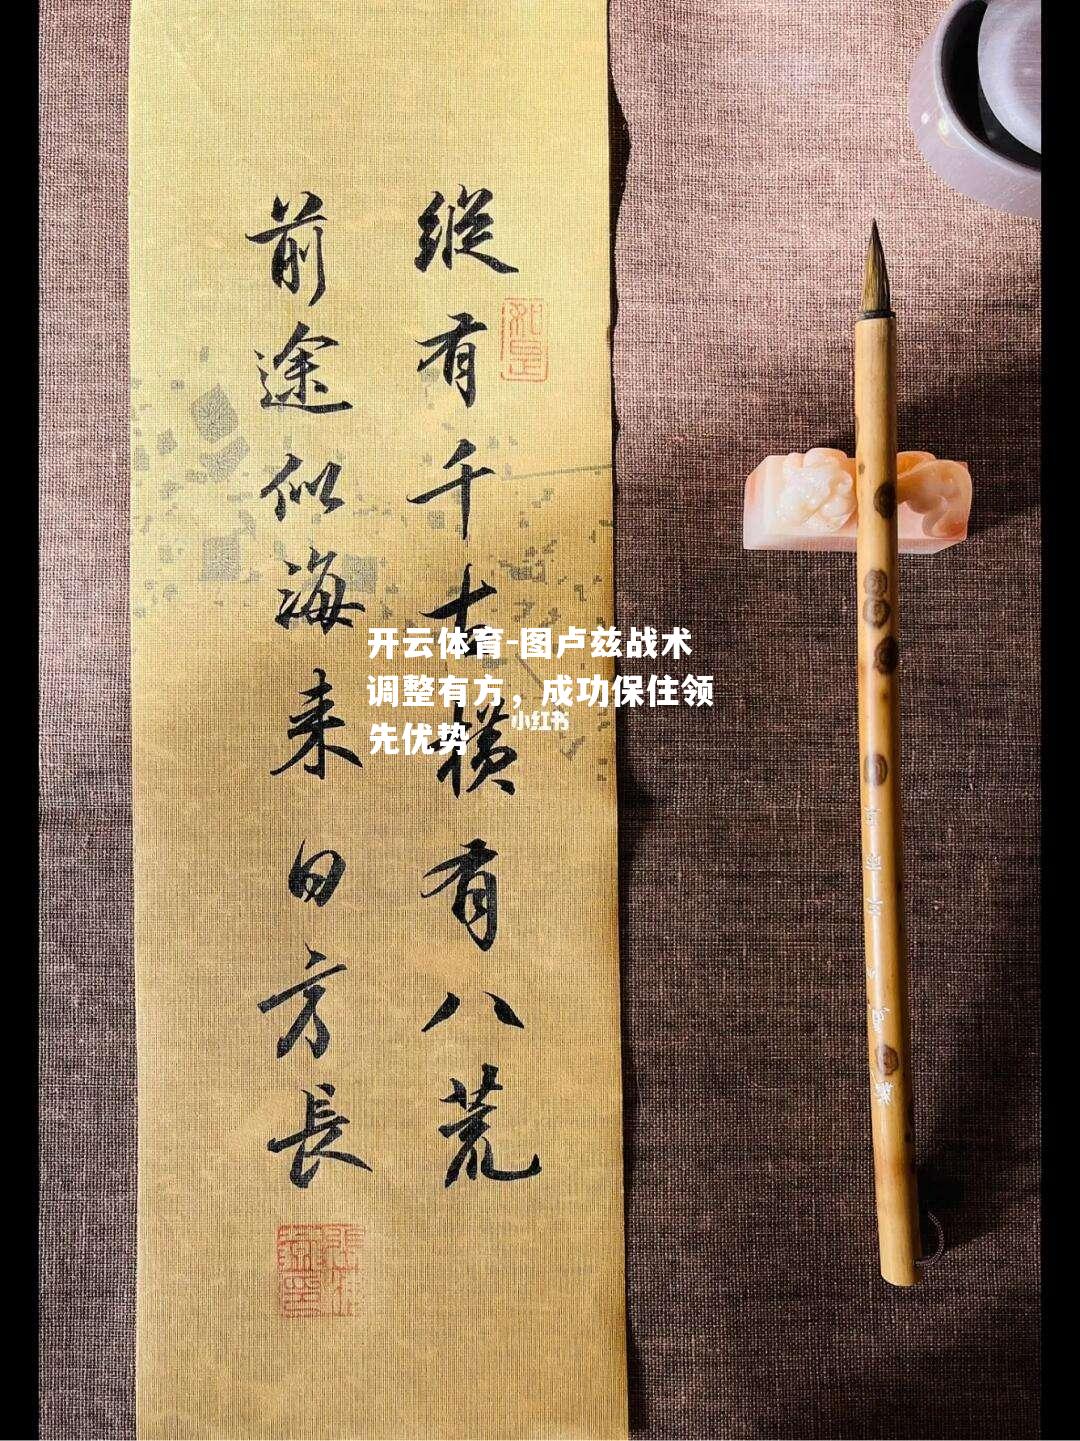 縱有千古橫有八荒
前途似海来日方長
如是
开云体育-图卢兹战术
调整有方，成功保住领
先优势
小红书